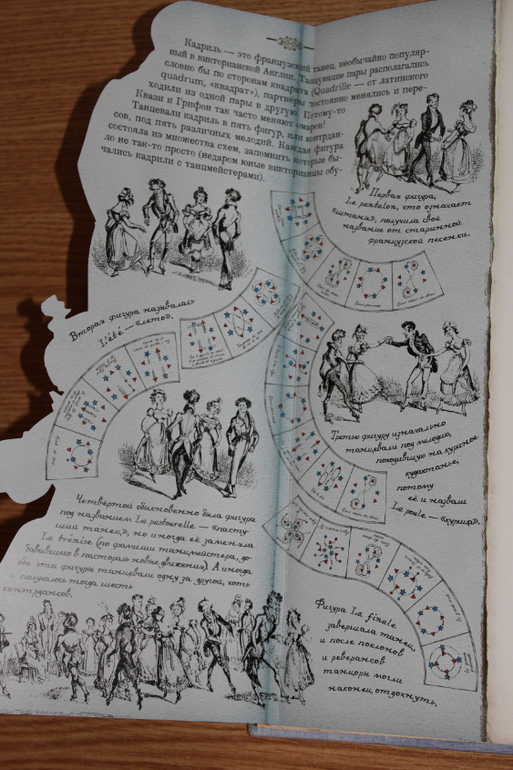 Кадриль — это французский танец, необычайно популяр-
ный в викторианской Англии. Танцующие пары располагались
словно бы по сторонам квадрата (Quadrille — от латинского
quadrum, «квадрат»), партнёры постоянно менялись и пере-
ходили из одной пары в другую. Потому-то
Квази и Грифон так часто меняют омаров!
Танцевали кадриль в пять фигур, или контрдан-
сов, под пять различных мелодий. Каждая фигура
состояла из множества схем, запомнить которые бы-
ло не так-то просто (недаром юные викторианцы обу-
чались кадрили с танцмейстерами).
Первая фигура,
Le pantalon, что означает
«штаны», получила своё
название от старинной
французской песенки.
Вторая фигура называлась
L'été — «лето».
Третью фигуру изначально
танцевали под мелодию,
походившую на куриное
кудахтанье,
потому
её и назвали
La poule — «курица».
Четвёртой обыкновенно была фигура
под названием La pastourelle — «пасту-
ший танец», но иногда её заменяла
La trénise (по фамилии танцмейстера, до-
бавившего в пастораль новые движения). А иногда
обе эти фигуры танцевали одну за другой, хоть
и получалось тогда шесть
контрдансов.
Фигура La finale
завершала танец,
и после поклонов
и реверансов
танцоры могли
наконец отдохнуть.